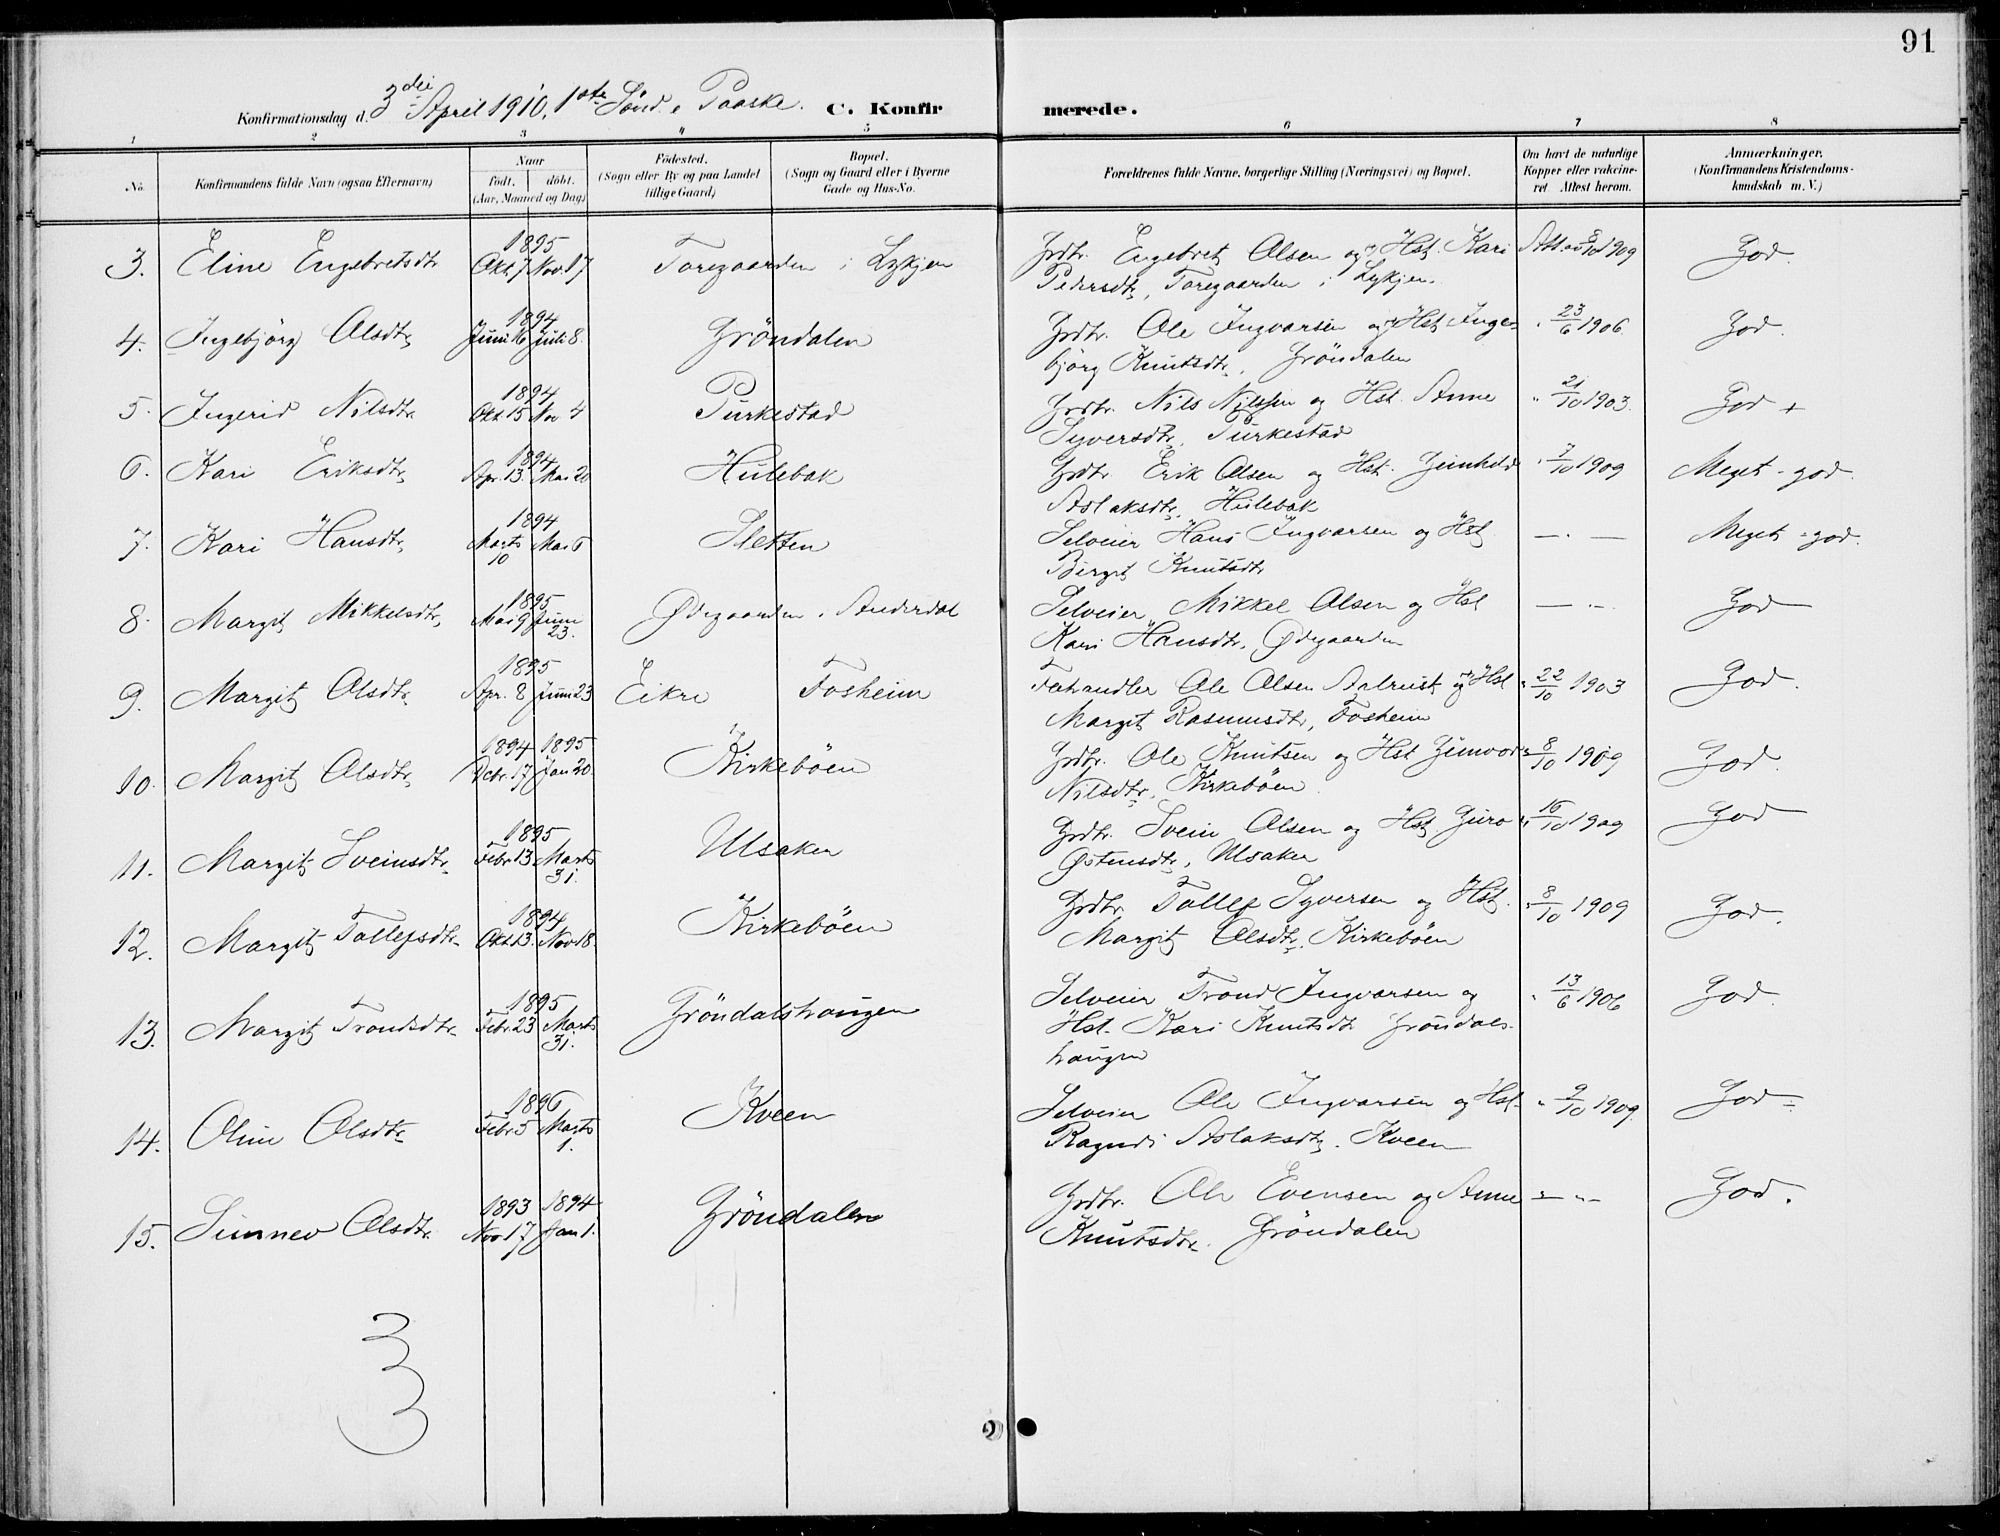 91
Konfirmationsdag d. 3die April 1910, 1ste Sönd. e. Paaske. C. Konfir merede.
1 2 3 4 5 6 7 8
No. Konfirmandens fulde Navn (ogsaa Efternavn) Naar födt. döbt. (Aar, Maaned og Dag) Födested. (Sogn eller By og paa Landet tillige Gaard) Bopæl. (Sogn og Gaard eller i Byerne Gade og Hus-No. Forældrenes fulde Navne, borgerlige Stilling (Næringsvei) og Bopæl. Om havt de naturlige Kopper eller vakcineret. Attest herom. Anmærkninger. (Konfirmandens Kristendomskundskab m. V.)
3. Eline Engebretsdtr 1895 Okt. 7 Nov. 17 Toregaarden i Lykjen Grdbr. Engebret Olsen og Hst. Kari Att. av 8/10 1909 God.
Pedersdtr, Toregaarden i Lykjen.
4. Ingebjörg Olsdtr 1894 Juni 16 Juli 8. Gröndalen Grdbr. Ole Ingvarsen og Hst Inge- " 23/6 1906. God.
björg Knutsdtr, Gröndalen
5. Ingerid Nilsdtr 1894 Okt. 15 Nov 4 Purkestad Grdbr. Nils Nilssen og Hst. Anne " 21/10 1903. God +
Syversdtr, Purkestad
6. Kari Eriksdtr 1894 Apr. 13. Mai 20 Hulebak Grdbr. Erik Olsen og Hst. Gunhild " 7/10 1909 Meget - god.
Aslaksdtr, Hulebak
7. Kari Hansdtr 1894 Marts 10 Mai 6 Sletten Selveier Hans Ingvarsen og Hst — " — Meget - god.
Birgit Knutsdtr
8. Margit Mikkelsdtr, 1895 Mai 9 Juni 23. Ødegaarden i Anderdal Selveier Mikkel Olsen og Hst — " - God
Kari Hansdtr, Ødegaarden
9. Margit Olsdtr 1895 Apr. 8 Juni 23 Eikre Fosheim Fæhandler Ole Olsen Aalrust og Hst " 22/10 1903 God.
Margit Rasmusdtr, Fosheim
10. Margit Olsdtr 1894 Dcbr. 17 1895 Jan 20. Kirkeböen Grdbr. Ole Knutsen og Hst Gunvor " 8/10 1909 God.
Nilsdtr, Kirkeböen.
11. Margit Sveinsdtr 1895 Febr 13 Marts 31. Ulsaker Grdbr. Svein Olsen og Hst Guro " 16/10 1909 God
Østensdtr, Ulsaker
12. Margit Tollefsdtr 1894 Okt. 13. Nov 18. Kirkeböen Grdbr. Tollef Syversen og Hst. " 8/10 1909 God.
Margit Olsdtr, Kirkeböen
13. Margit Trondsdtr 1895 Febr. 23 Marts 31. Gröndalshaugen Selveier Trond Ingvarsen og " 13/6 1906 God.
Hst. Kari Knutsdtr Gröndals-
haugen
14. Oline Olsdtr 1896 Febr 5 Marts 1. Kveen Selveier Ole Ingvarsen og Hst. " 9/10 1909. God -
Ragndi Aslaksdtr, Kveen
15. Sunnev Olsdtr. 1893 Nov 17 1894 Jan 1. Gröndalen Grdbr. Ole Evensen og Anne - " - God.
Knutsdtr. Gröndalen
3
3